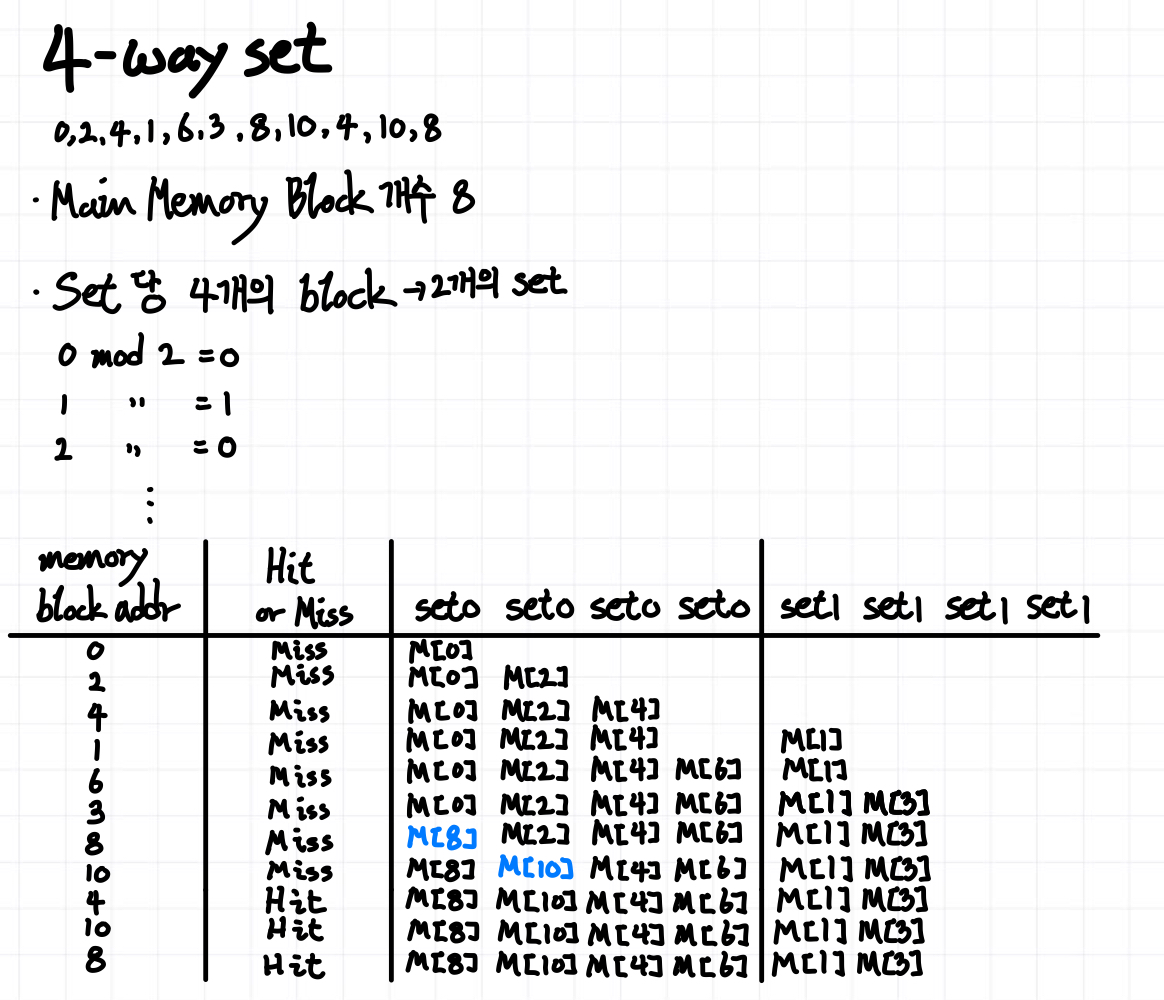 4-way set
0,2,4,1,6,3,8,10,4,10,8
· Main Memory Block 개수 8
· Set 당 4개의 block → 2개의 set
0 mod 2 = 0
1 〃 = 1
2 〃 = 0
⋮
memory block addr | Hit or Miss | set0 set0 set0 set0 | set1 set1 set1 set1
0 Miss M[0]
2 Miss M[0] M[2]
4 Miss M[0] M[2] M[4]
1 Miss M[0] M[2] M[4] M[1]
6 Miss M[0] M[2] M[4] M[6] M[1]
3 Miss M[0] M[2] M[4] M[6] M[1] M[3]
8 Miss M[8] M[2] M[4] M[6] M[1] M[3]
10 Miss M[8] M[10] M[4] M[6] M[1] M[3]
4 Hit M[8] M[10] M[4] M[6] M[1] M[3]
10 Hit M[8] M[10] M[4] M[6] M[1] M[3]
8 Hit M[8] M[10] M[4] M[6] M[1] M[3]